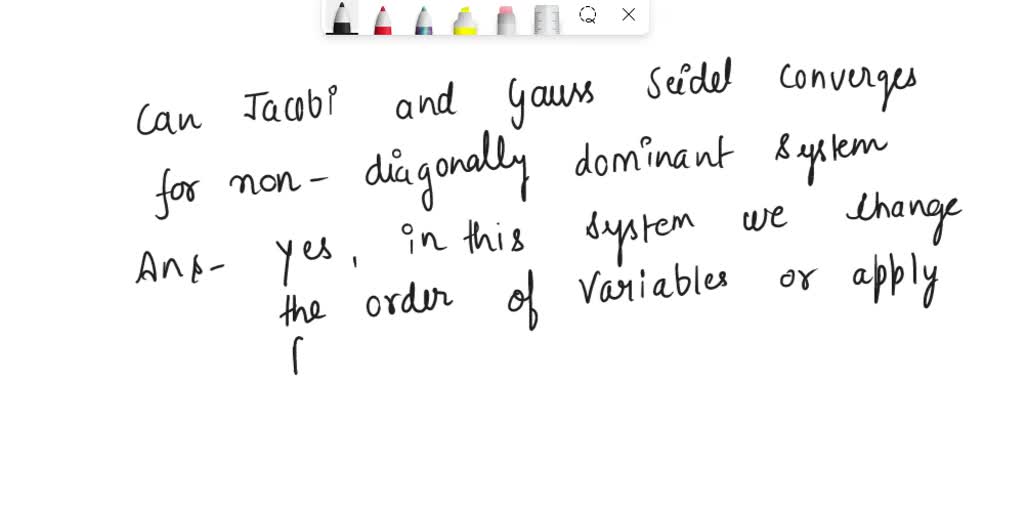 Can Jacobi and Gauss Seidel Converges
for non- diagonally dominant system
Ans- yes, in this system we change
the order of variables or apply